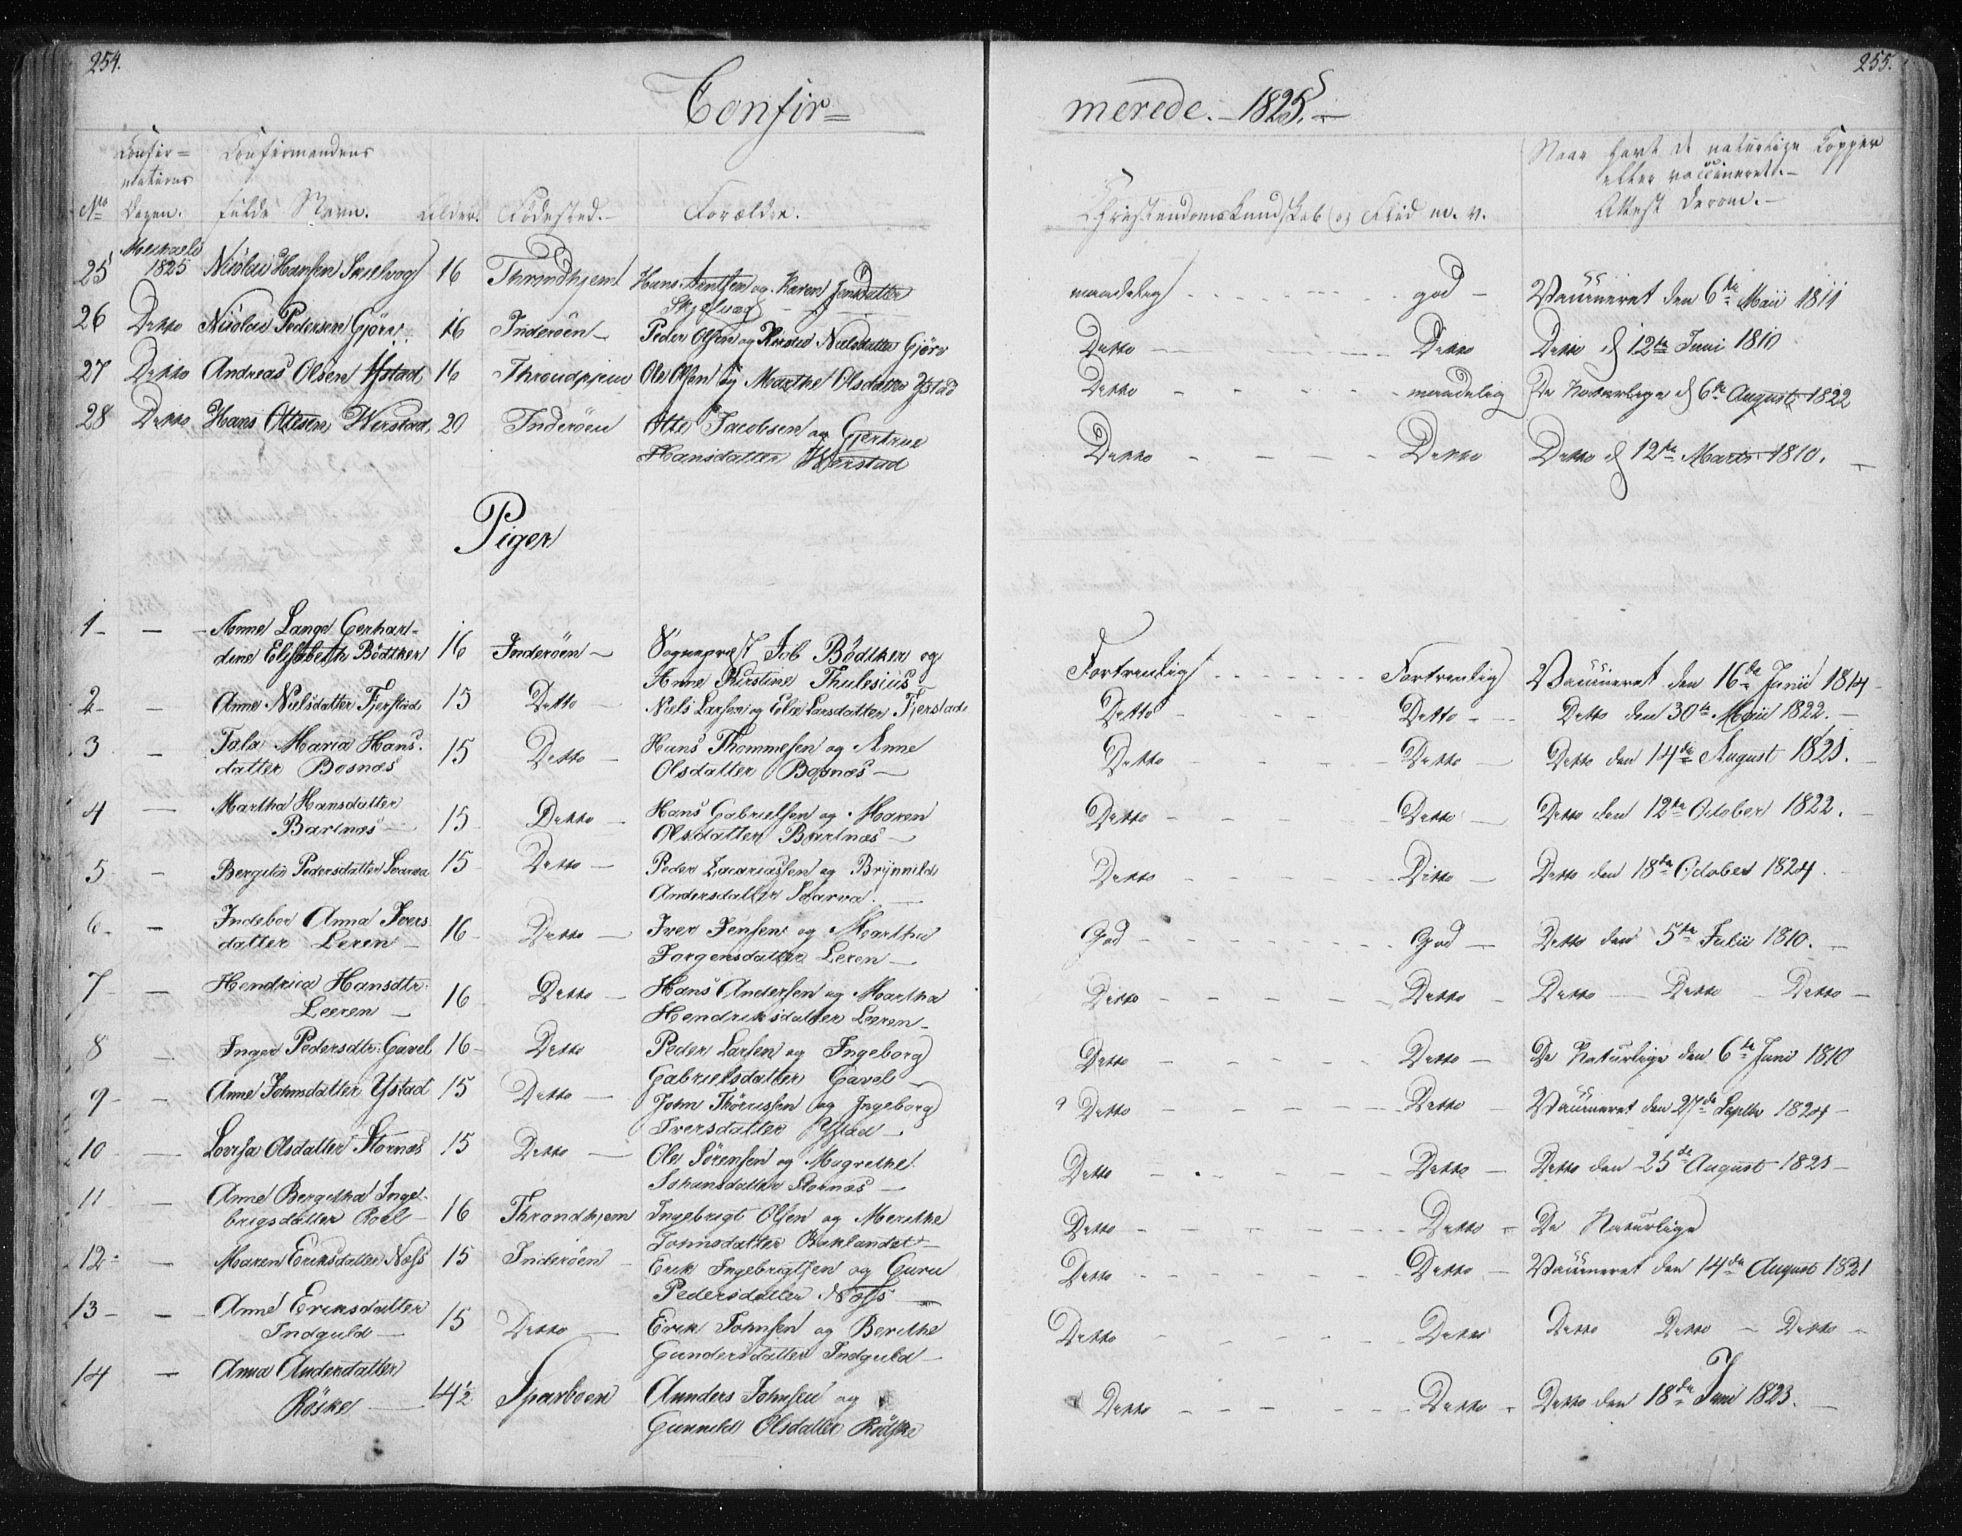 254.
255.
Confir=
merede. 1825.
Confir=
mations
Dagen.
No
Confirmandens
fulde Navn.
Alder.
Födested.
Forældre.
Christendomskundskab og Flid m. v.
Naar havt de naturlige Kopper
eller vaccineret.
Attest derom.
25 Michaeli 1825 Nicolai Hansen Skielvog 16 Throndhjem Hans Arntsen og Karen Jensdatter
Skjelvog
maadelig god Vaccineret den 6te Maii 1811
26 Detto Nicolai Pedersen Gjörv 16 Inderöen Peder Olsen og Nielsdatter Gjörv
Detto Detto Detto d 12te Juni 1810
27 Detto Andreas Olsen Ystad 16 Throndhjem Ole Olsen og Marthe Olsdatter Ystad
Detto maadelig De Naturlige d 6te August 1822
28 Detto Hans Ottesen Werstad 20 Inderöen Otto Jacobsen og Gjertrue
Hansdatter Werstad
Detto Detto Detto d 12te Marts 1810.
Piger
1 Anne Lange Gerhar-
dine Elisabeth Bödtker 16 Inderöen Sogneprest Job Bödtker og
Anne Kirstine Thulesius
Fortrenlig Fortrenlig Vaccineret den 16de Junii 1814
2 Anne Nielsdatter Fjerstad 15 Detto Niels Larsen og Larsdatter Fjerstad
Detto Detto Detto den 30te Maii 1822.
3 Maria Hans-
datter Bosnæs 15 Detto Hans Thommesen og Anne
Olsdatter Bosnæs
Detto Detto Detto den 14de August 1821.
4 Martha Hansdatter
Bartnæs 15 Detto Hans Gabrielsen og Maren
Olsdatter Bartnæs
Detto Detto Detto den 12te October 1822.
5 Pedersdatter Saarva 15 Detto Peder Zacariassen og Brynnild
Andersdatter Saarva.
Detto Detto Detto den 18de October 1824.
6 Ingebor Anna Ivers
datter Leren 16 Detto Iver Jensen og Martha
Jorgensdatter Leren
God God Detto den 5te Julii 1810.
7 Hendrica Hansdtr.
Leeren 16 Detto Hans Andersen og Martha
Hendriksdatter Leeren
Detto Detto Detto Detto Detto
8 Inger Pedersdtr. Gavel 16 Detto Peder Larsen og Ingeborg
Gabrielsdatter Gavel
Detto Detto De Naturlige den 6te Juni 1810
9 Anne Johnsdatter Ystad 15 Detto John og Ingeborg
Iversdatter Ystad
Detto Detto Vaccineret den 27de Septbr 1824
10 Lovisa Olsdatter Stornæs 15 Detto Ole Sörensen og Magrethe
Johansdatter Stornæs
Detto Detto Detto den 25de August 1821
11 Anne Bergitha Inge-
brigsdatter Roel 16 Throndhjem Ingebrigt Olsen og Merethe
Johnsdatter Baklandet
Detto Detto De Naturlige
12 Maren Eriksdatter Næss 15 Inderöen Erik Ingebrigtsen og Guru
Pedersdatter Næss
Detto Detto Vaccineret den 14de August 1821
13 Anne Eriksdatter
Indguld 15 Detto Erik Johnsen og Berithe
Gundersdatter Indguld
Detto Detto Detto Detto Detto
14 Anna Andersdatter
Röske 14½ Sparboen Annders Johnsen og
Gunnild Olsdatter Röske
Detto Detto Detto den 18de Juni 1823.